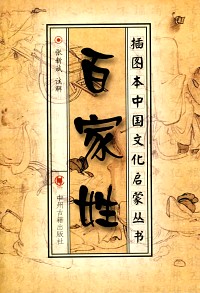 插图本中国文化启蒙丛书
百家姓
张新斌 注解
中州古籍出版社